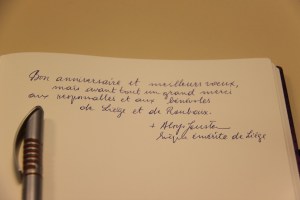 Bon anniversaire et meilleurs voeux,
mais avant tout un grand merci
aux responsables et aux bénévoles
de Liège et de Roubaix.
+ Aloys Jousten
évêque émérite de Liège